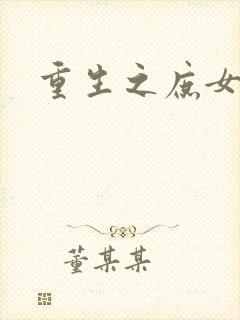 重生之庶女
董某某